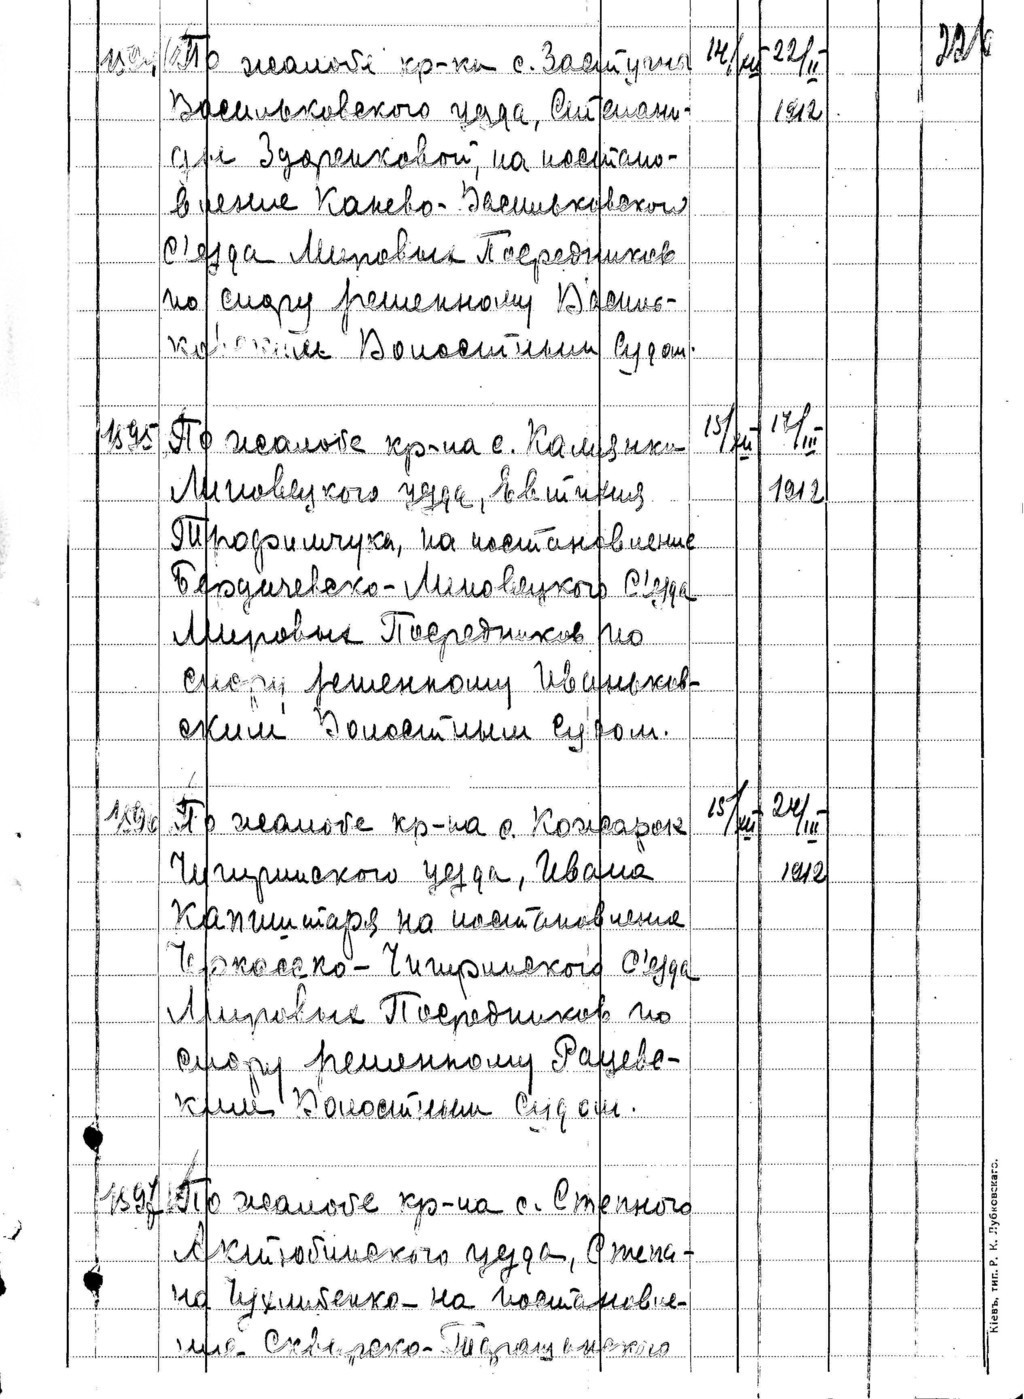 По жалобе кр-ки с. Застугны 14/XII 22/II
Васильковского уезда, Степани- 1912
ды Здоренковой, на постано-
вление Канево-Васильковского
С'езда Мировых Посредников
по спору решенному Василь-
ковским Волостным Судом.
1595 По жалобе кр-на с. Камянки 15/XII 17/III
Липовецкого уезда, Евтихия 1912
Трофимчука, на постановление
Бердичевско-Липовецкого С'езда
Мировых Посредников по
спору решенному Иваньков-
ским Волостным Судом.
1596 По жалобе кр-на с. Кожарок 15/XII 24/III
Чигиринского уезда, Ивана 1912
Капшитаря на постановление
Черкасско-Чигиринского С'езда
Мировых Посредников по
спору решенному Рацевс-
ким Волостным Судом.
1597 По жалобе кр-на с. Степного
Актюбинского уезда, Степа-
на Чухлибенко на постановле-
ние Сквирско-Таращанского
Кіевъ, тип. Р. К. Лубковскаго.